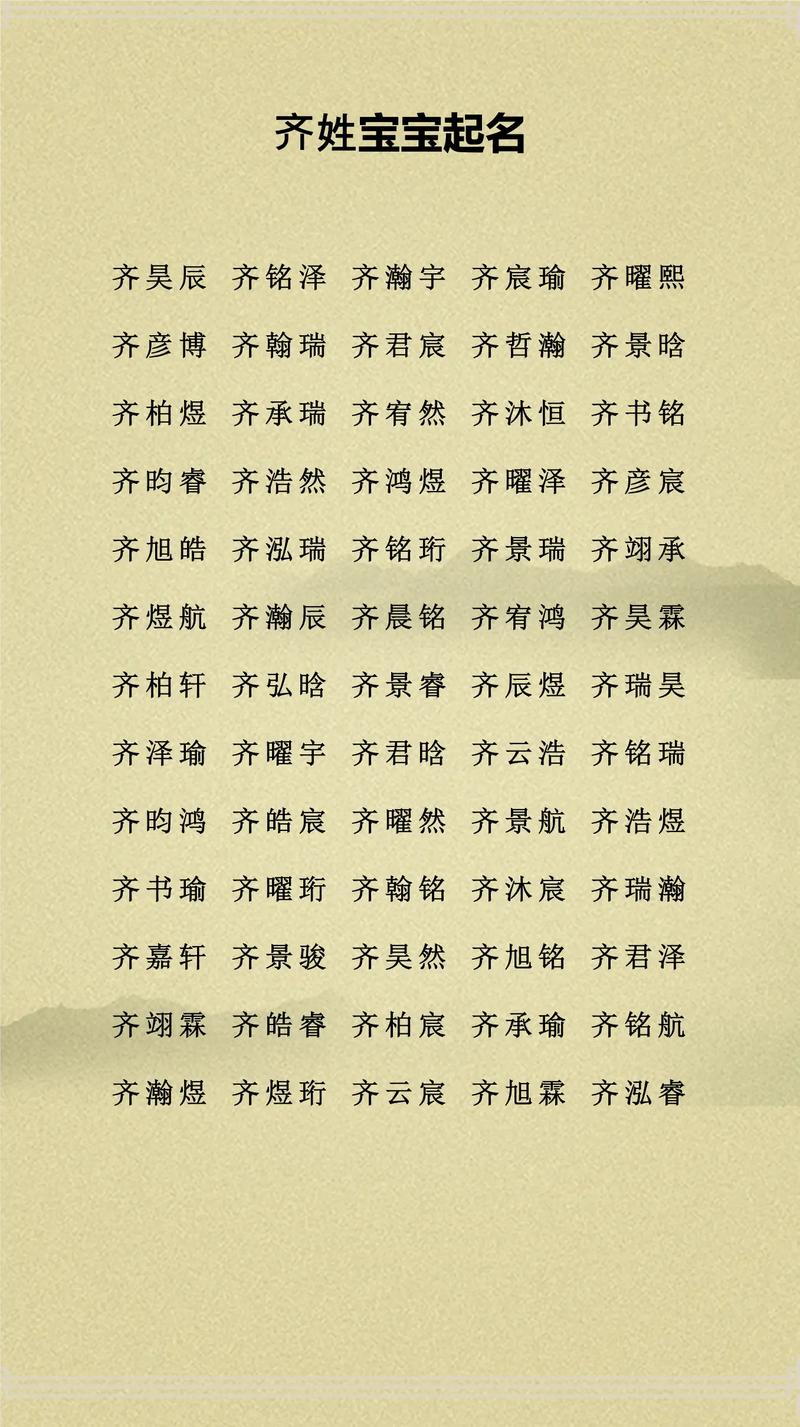 齐姓宝宝起名
齐昊辰 齐铭泽 齐瀚宇 齐宸瑜 齐曜熙
齐彦博 齐翰瑞 齐君宸 齐哲瀚 齐景晗
齐柏煜 齐承瑞 齐宥然 齐沐恒 齐书铭
齐昀睿 齐浩然 齐鸿煜 齐曜泽 齐彦宸
齐旭皓 齐泓瑞 齐铭珩 齐景瑞 齐翊承
齐煜航 齐瀚辰 齐晨铭 齐宥鸿 齐昊霖
齐柏轩 齐弘晗 齐景睿 齐辰煜 齐瑞昊
齐泽瑜 齐曜宇 齐君晗 齐云浩 齐铭瑞
齐昀鸿 齐皓宸 齐曜然 齐景航 齐浩煜
齐书瑜 齐曜珩 齐翰铭 齐沐宸 齐瑞瀚
齐嘉轩 齐景骏 齐昊然 齐旭铭 齐君泽
齐翊霖 齐皓睿 齐柏宸 齐承瑜 齐铭航
齐瀚煜 齐煜珩 齐云宸 齐旭霖 齐泓睿